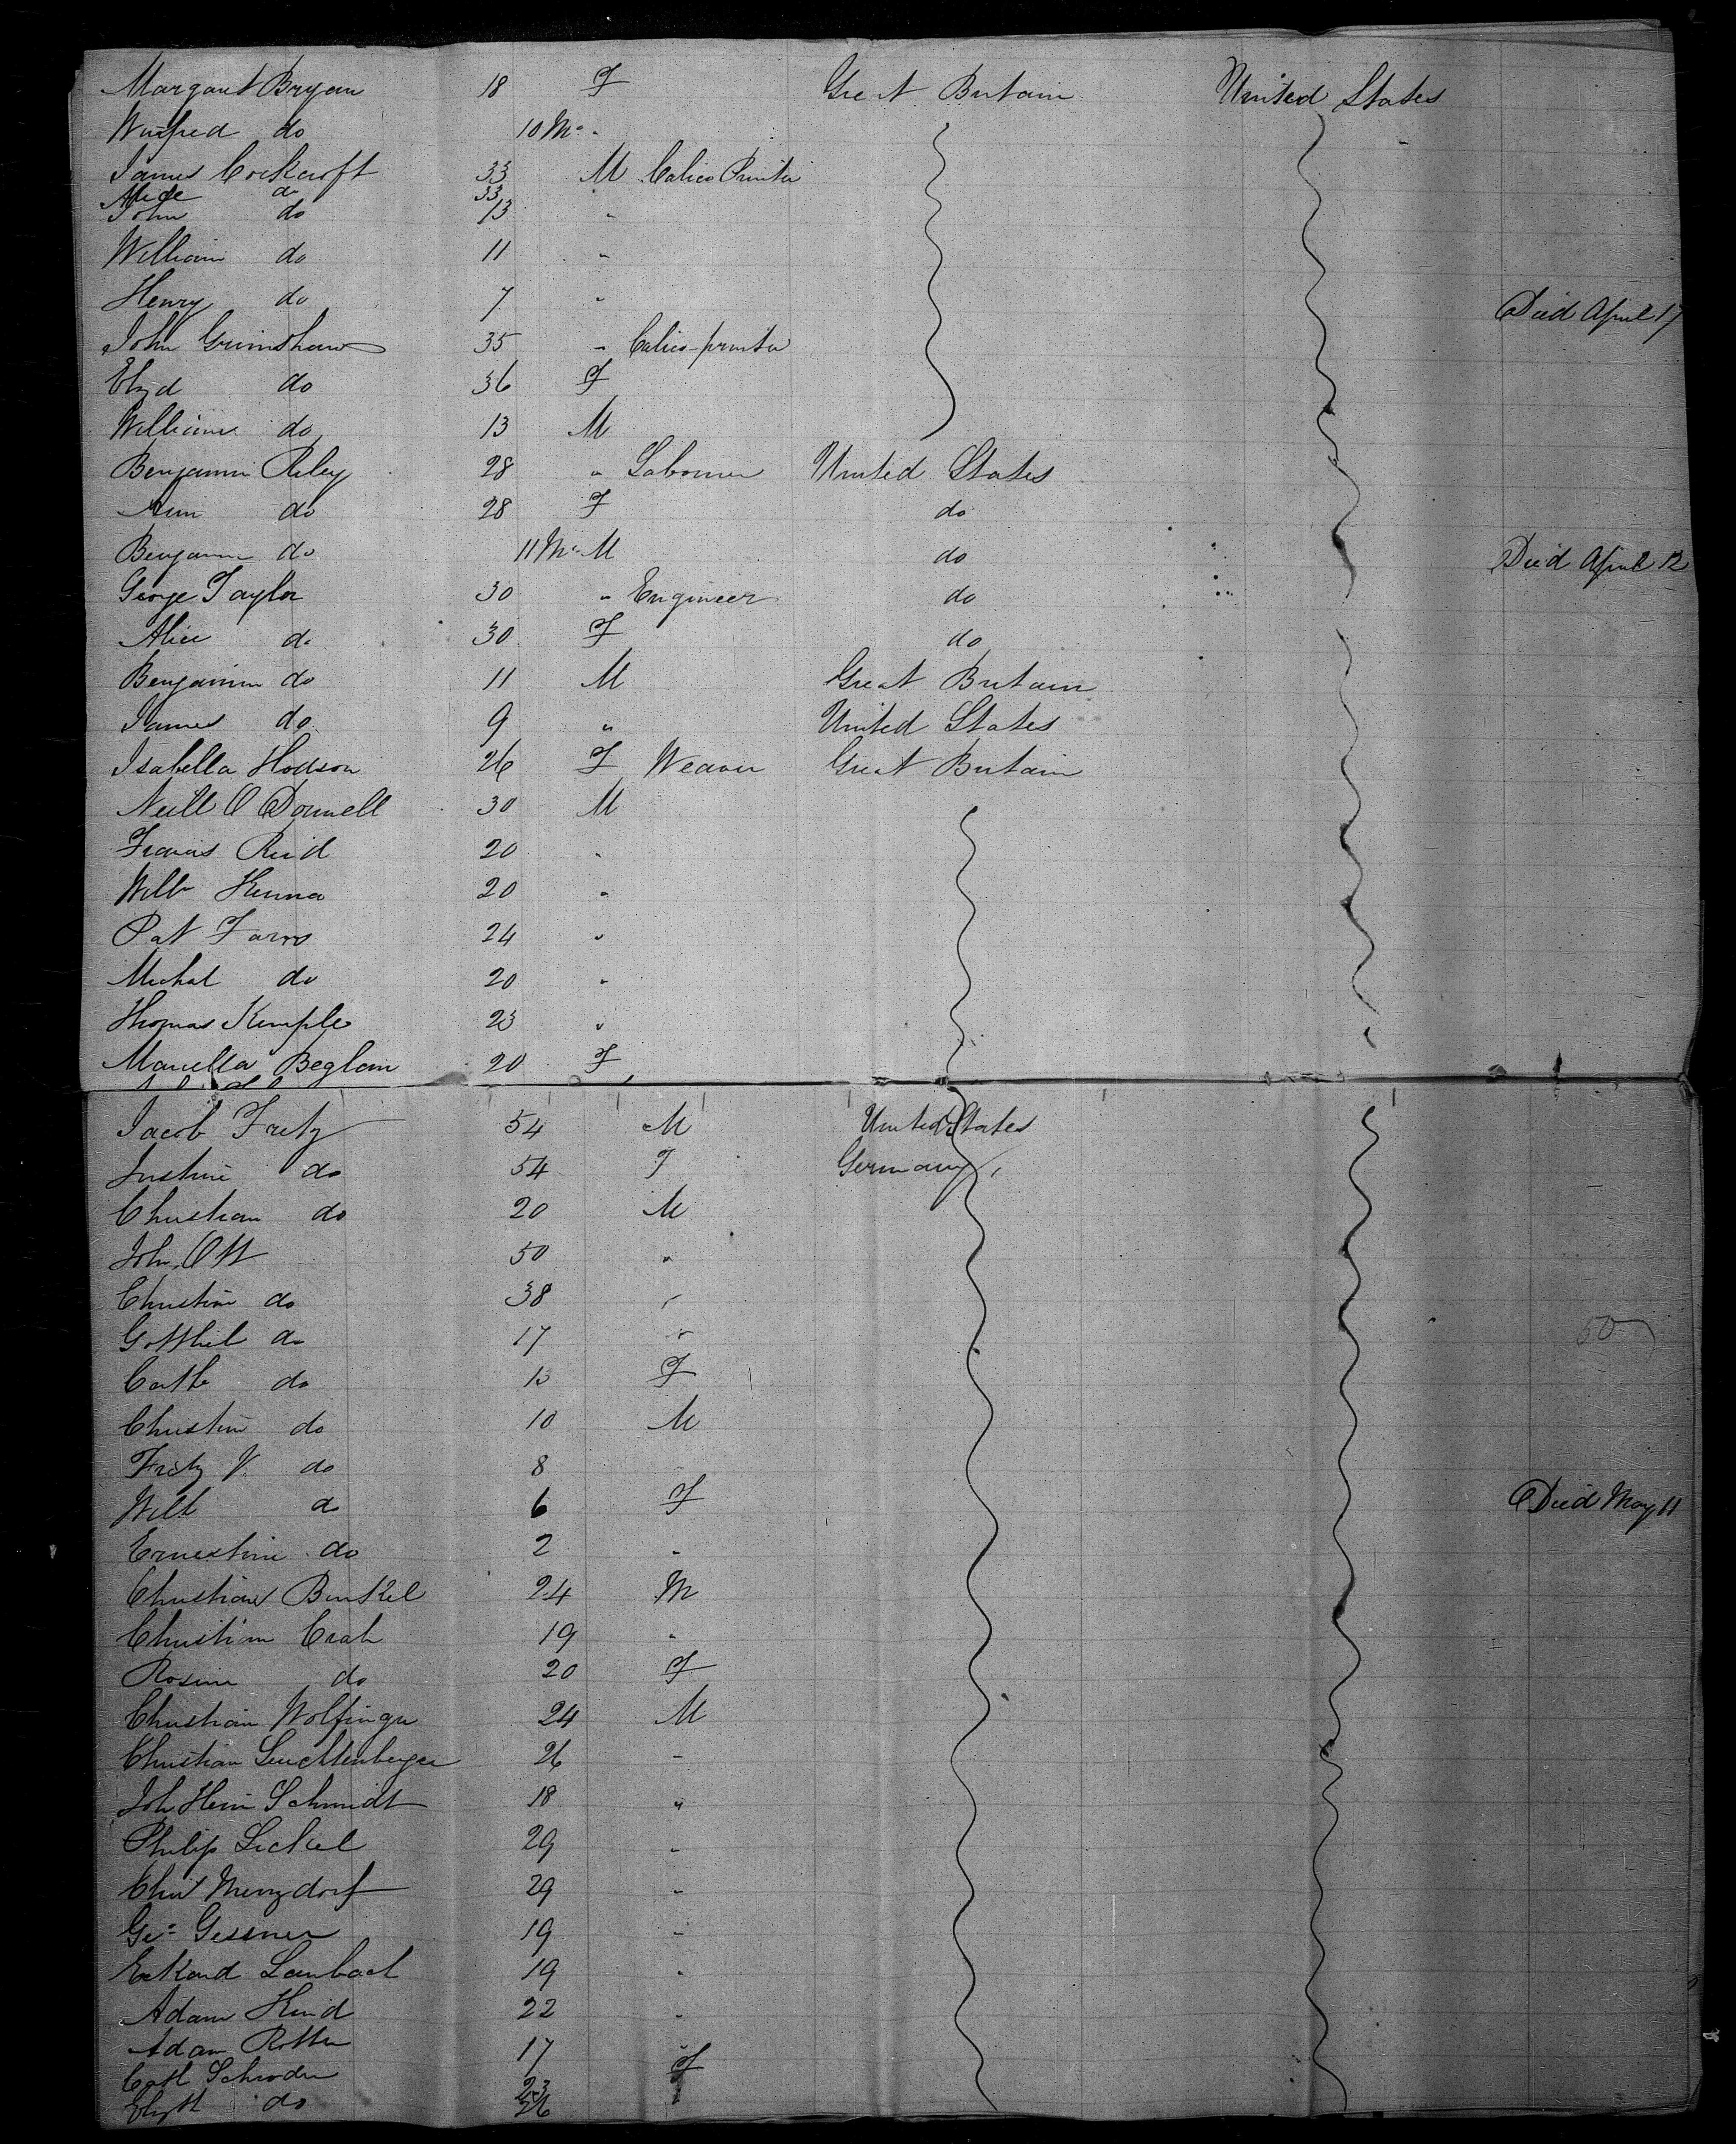 Margaret Bryan 18 F Great Britain United States
Winfred do 10 Mo "
James Cockcroft 33 M Calico Printer
Alice do 33
John do 13 "
William do 11 "
Henry do 7 " Died April 17
John Grimshaw 35 " Calico-printer
Elizd do 36 F
William do 13 M
Benjamin Riley 28 " Laborer United States
Ann do 28 F do
Benjamin do 11 Mo M do Died April 12
George Taylor 30 " Engineer do
Alice do 30 F do
Benjamin do 11 M Great Britain
James do 9 " United States
Isabella Hodson 26 F Weaver Great Britain
Neill O Donnell 30 M
Francis Reid 20 "
Willm Kenna 20 "
Pat Farro 24 "
Michal do 20 "
Thomas Kemple 23 "
Marcella Beglan 20 F
Jacob Fretz 54 M United States
Justine do 54 F Germany
Christian do 20 M
John Ott 50 "
Christine do 38 "
Gotthieb do 17 " 50
Cath do 13 F
Christian do 10 M
Fritz J. do 8
Wilh do 6 F Died May 11
Ernestine do 2 "
Christian Bunkel 24 M
Christian Crah 19 "
Rosine do 20 F
Christian Wolfinger 24 M
Christian Leuchtenberger 26 "
Joh Hein Schmidt 18 "
Philip Lickel 29 "
Chir Menzdorf 29 "
Geo Gessner 19 "
Eckard Lambach 19 "
Adam Hind 22 "
Adam Rotter 17 "
Cath Schroder 23 F
Elizth do 26 "